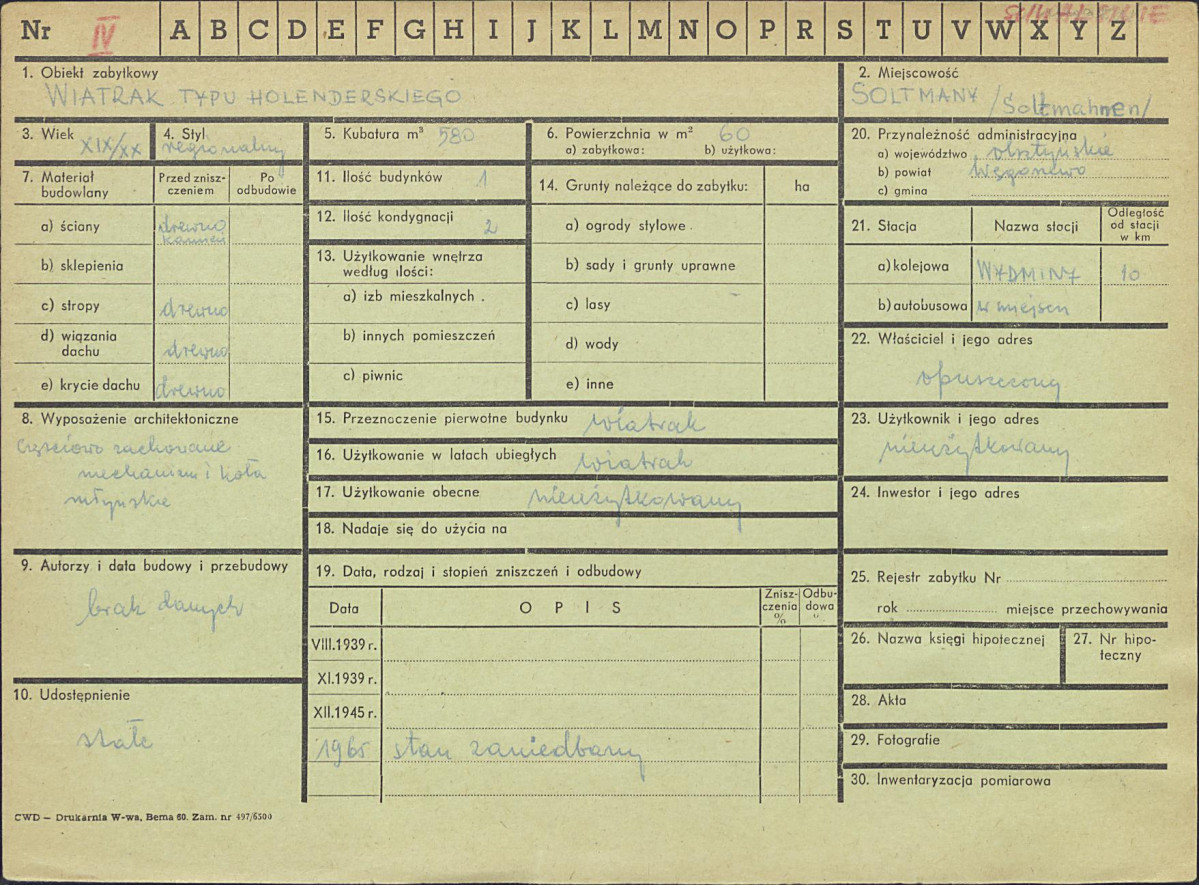 Nr IV A B C D E F G H I J K L M N O P R S T U V W X Y Z
1. Obiekt zabytkowy
WIATRAK TYPU HOLENDERSKIEGO
2. Miejscowość
SOŁTMANY /Soltmahnen/
3. Wiek
XIX/XX
4. Styl
regionalny
5. Kubatura m³ 580
6. Powierzchnia w m² 60
a) zabytkowa: b) użytkowa:
7. Materiał budowlany
Przed zniszczeniem
Po odbudowie
a) ściany drewno
kamień
b) sklepienia
c) stropy drewno
d) wiązania dachu drewno
e) krycie dachu drewno
8. Wyposażenie architektoniczne
częściowo zachowane
mechanizm i koła
młyńskie
9. Autorzy i data budowy i przebudowy
brak danych
10. Udostępnienie
stałe
11. Ilość budynków 1
12. Ilość kondygnacji 2
13. Użytkowanie wnętrza
według ilości:
a) izb mieszkalnych .
b) innych pomieszczeń
c) piwnic
14. Grunty należące do zabytku: ha
a) ogrody stylowe .
b) sady i grunty uprawne
c) lasy
d) wody
e) inne
15. Przeznaczenie pierwotne budynku wiatrak
16. Użytkowanie w latach ubiegłych wiatrak
17. Użytkowanie obecne nieużytkowany
18. Nadaje się do użycia na
19. Data, rodzaj i stopień zniszczeń i odbudowy
Data OPIS Zniszczenia % Odbudowa "
VIII.1939 r.
XI.1939 r.
XII.1945 r.
1965 stan zaniedbany
20. Przynależność administracyjna
a) województwo olsztyńskie
b) powiat Węgorzewo
c) gmina
21. Stacja Nazwa stacji Odległość od stacji w km
a) kolejowa WYDMINY 10
b) autobusowa w miejscu
22. Właściciel i jego adres
opuszczony
23. Użytkownik i jego adres
nieużytkowany
24. Inwestor i jego adres
25. Rejestr zabytku Nr
rok miejsce przechowywania
26. Nazwa księgi hipotecznej
27. Nr hipoteczny
28. Akta
29. Fotografie
30. Inwentaryzacja pomiarowa
CWD — Drukarnia W-wa, Bema 60. Zam. nr 497/6500